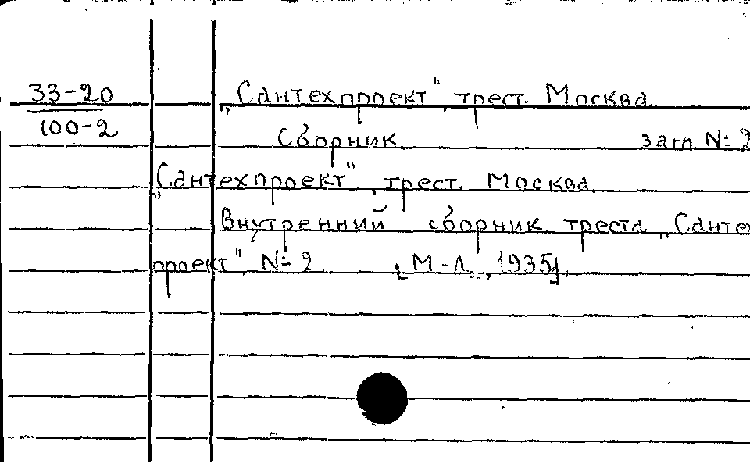 33-20
100-2
„Сантехпроект", трест. Москва.
Сборник загл № 2
„Сантехпроект", трест. Москва.
Внутренний сборник треста „Санте
проект". № 2 [М-Л., 1935].